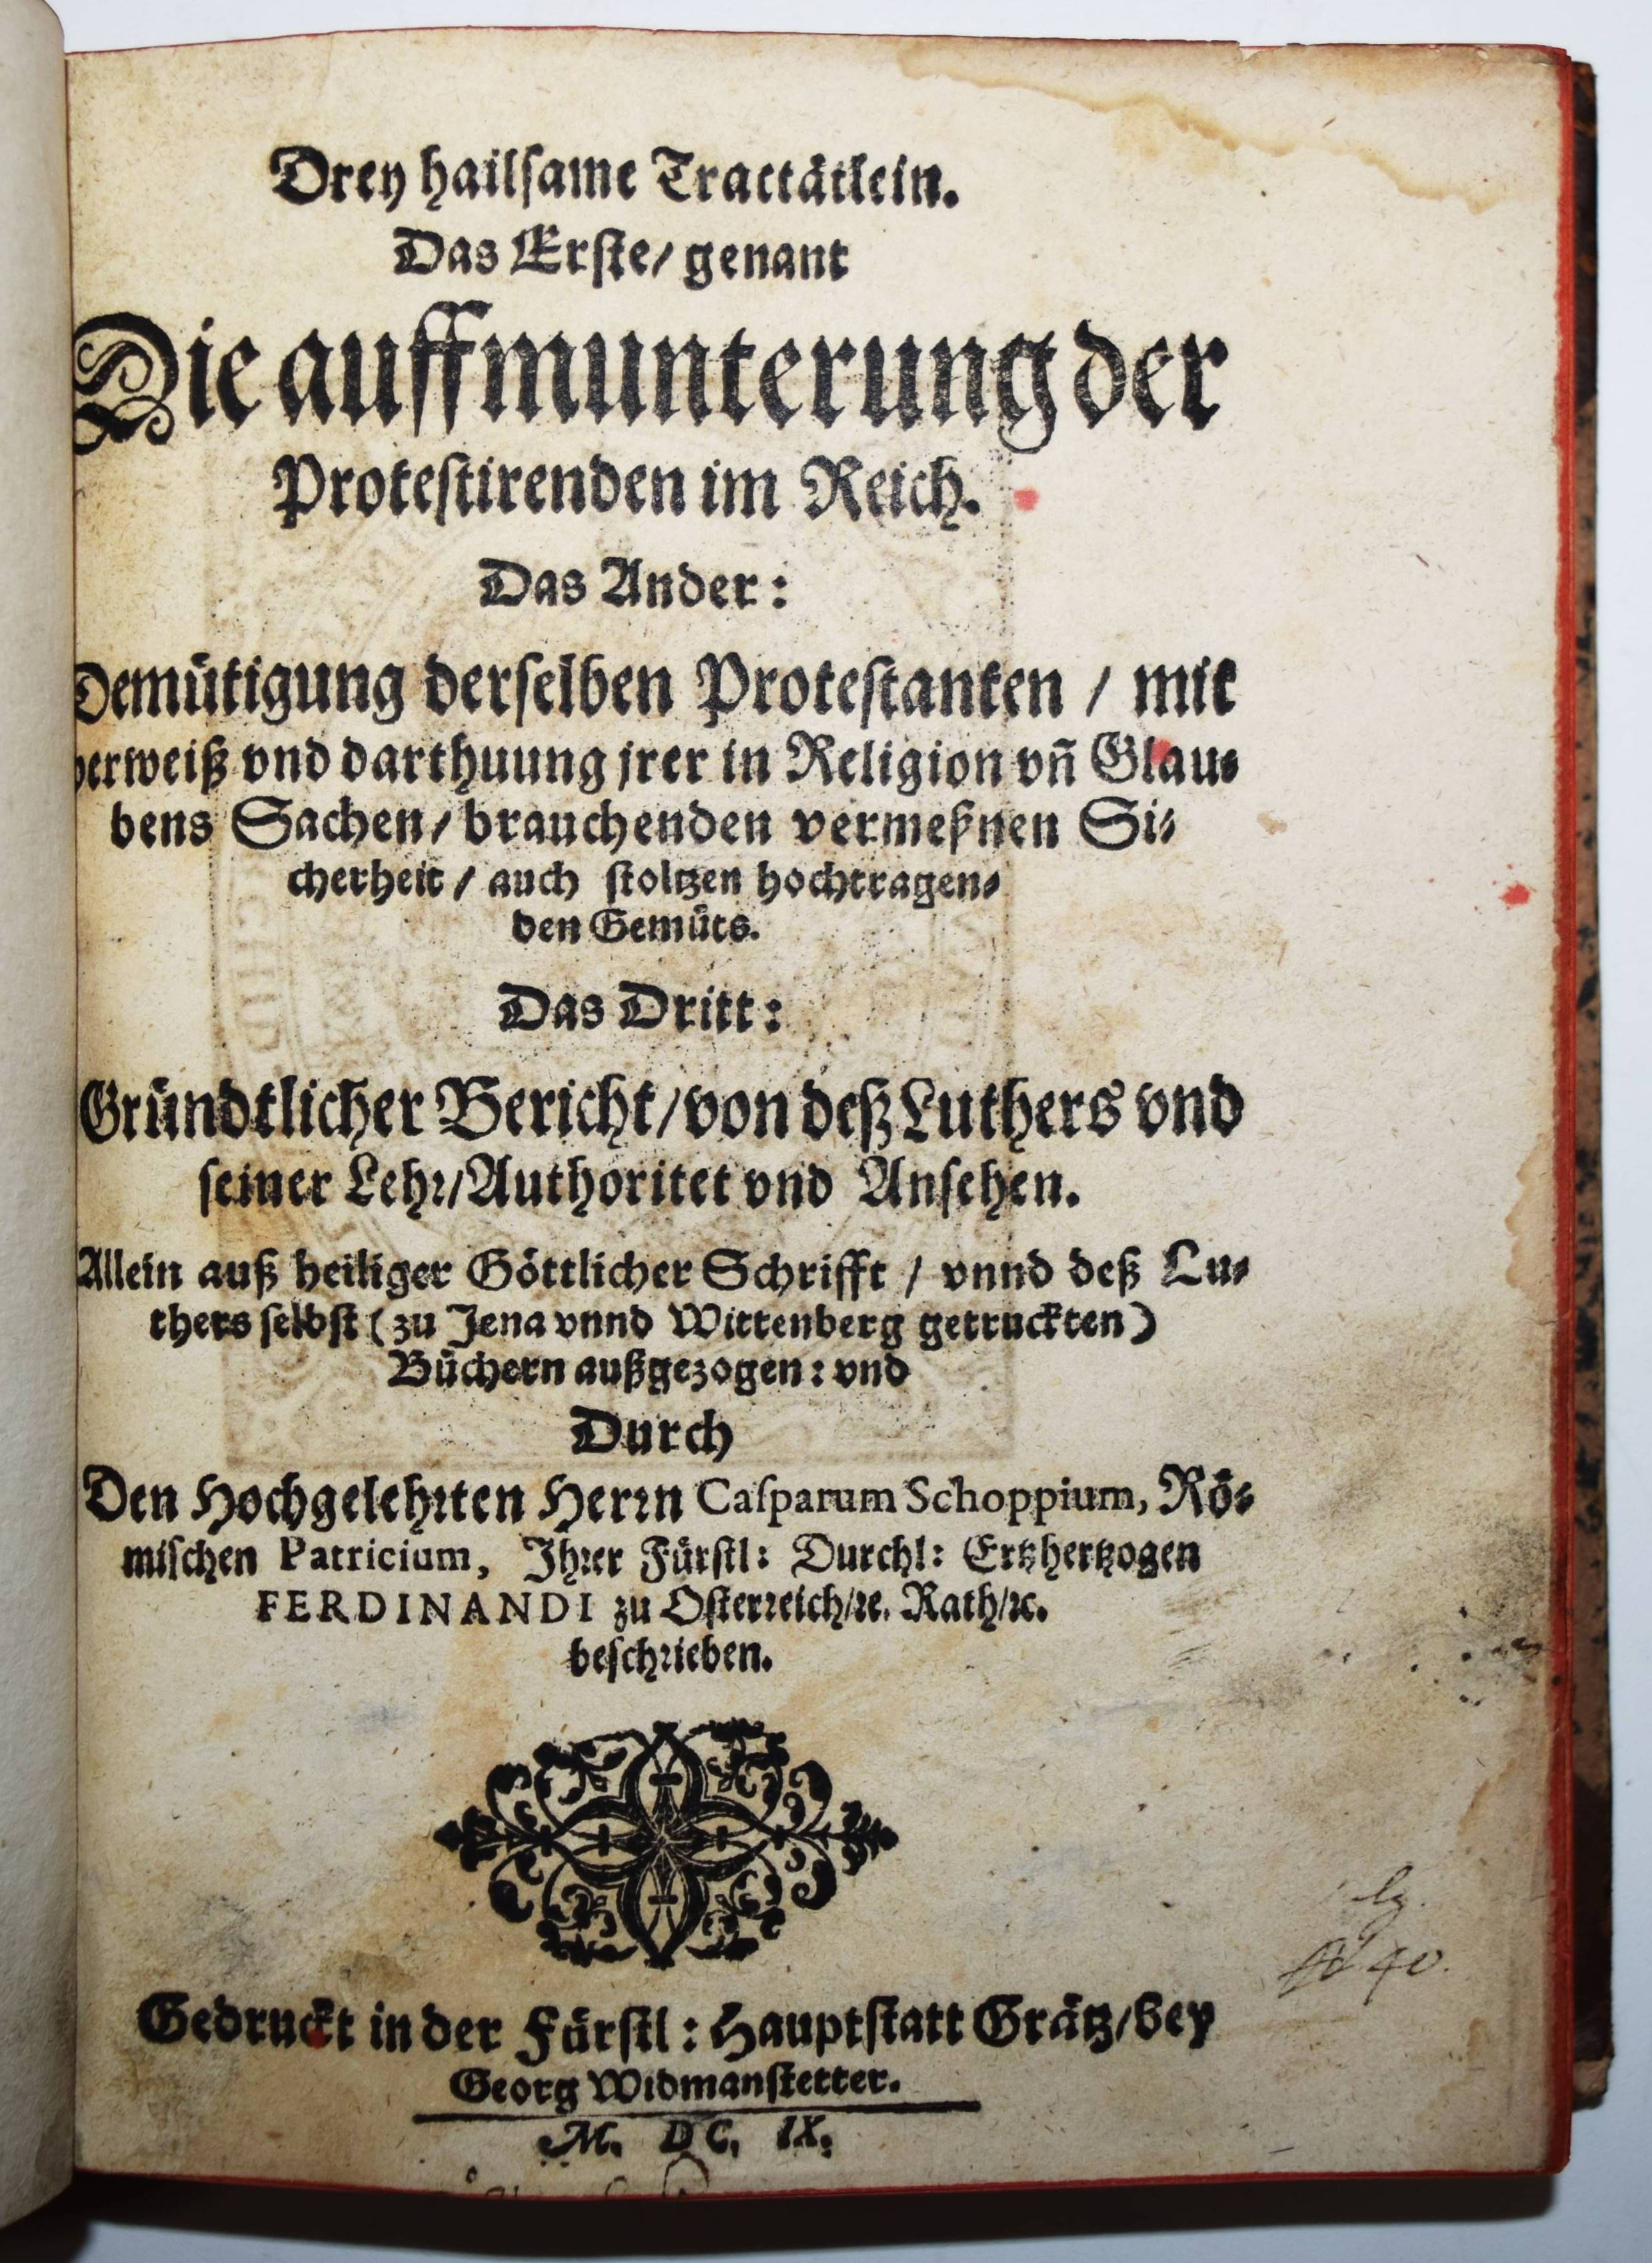 Drey hailsame Tractätlein.
Das Erste/ genant
Die auffmunterung der
Protestirenden im Reich.
Das Ander:
Demütigung derselben Protestanten / mit
verweiß vnd darthuung jrer in Religion vñ Glau-
bens Sachen/ brauchenden vermeßnen Si-
cherheit / auch stoltzen hochtragen-
den Gemüts.
Das Dritt:
Gründtlicher Bericht/ von deß Luthers vnd
seiner Lehr/ Authoritet vnd Ansehen.
Allein auß heiliger Göttlicher Schrifft / vnnd deß Lu-
thers selbst (zu Jena vnnd Wittenberg getruckten)
Büchern außgezogen: vnd
Durch
Den Hochgelehrten Herrn Casparum Schoppium, Rö-
mischen Patricium, Ihrer Fürstl: Durchl: Ertzhertzogen
FERDINANDI zu Osterreich/ꝛc. Rath/ꝛc.
beschrieben.
Gedruckt in der Fürstl: Hauptstatt Grätz/ bey
Georg Widmanstetter.
M. DC. IX.
40.